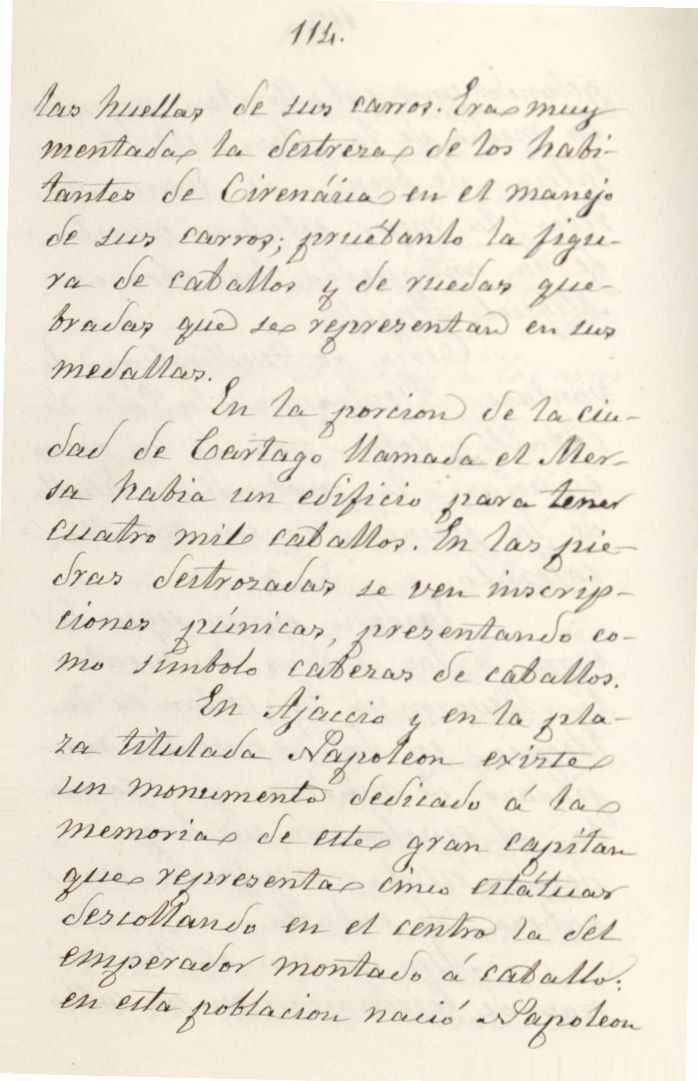 114.
las huellas de sus carros. Era muy
mentada la destreza de los habi-
tantes de Cirenáica en el manejo
de sus carros; pruébanlo la figu-
ra de caballos y de ruedas que-
bradas que se representan en sus
medallas.
En la porcion de la ciu-
dad de Cartago llamada el Mer-
sa habia un edificio para tener
cuatro mil caballos. En las pie-
dras destrozadas se ven inscrip-
ciones púnicas, presentando co-
mo símbolo cabezas de caballos.
En Ajaccio y en la pla-
za titulada Napoleon existe
un monumento dedicado á la
memoria de este gran capitan
que representa cinco estátuas
descollando en el centro la del
emperador montado á caballo:
en esta poblacion nació Napoleon